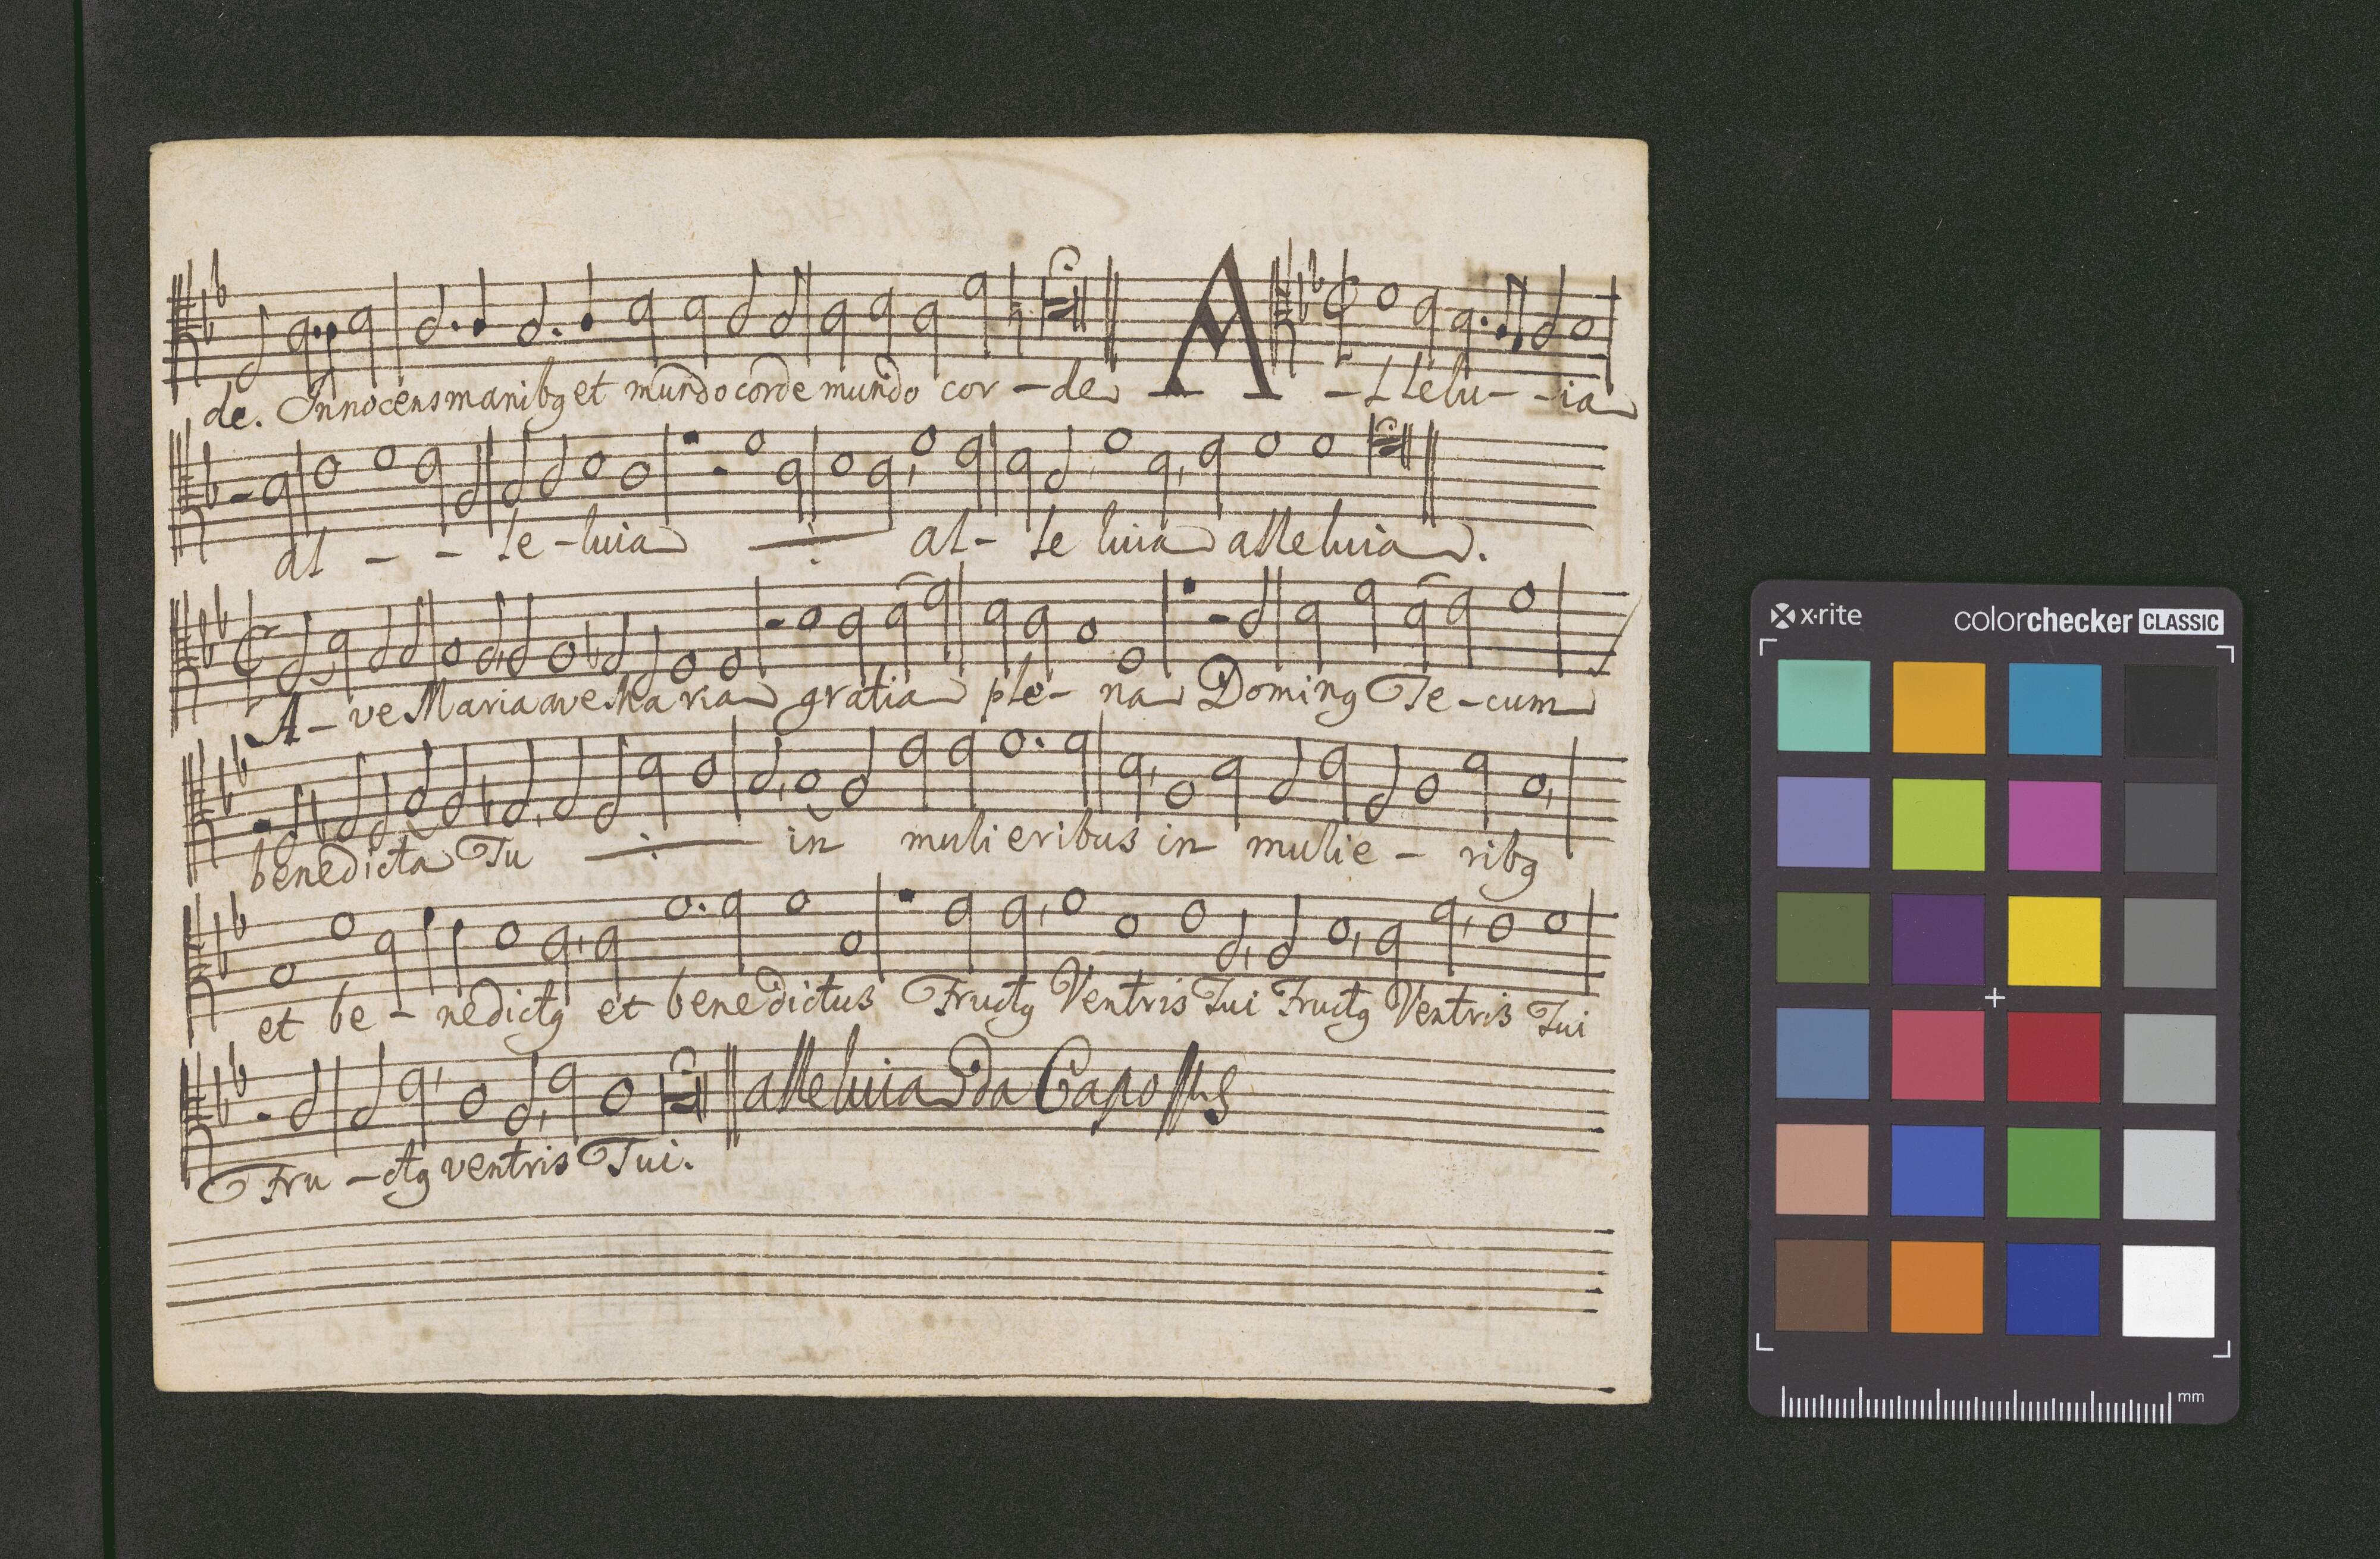 de. Innocens manibꝫ et mundo corde mundo cor - de A - lle lu - - ia
al - - - le - luia al - le luia alleluia.
A - ve Maria ave Maria gratia ple - na Dominꝰ Te - cum
benedicta Tu in mulieribus in mulie - ribꝰ
et be - nedictꝰ et benedictus Fructꝰ Ventris Tui Fructꝰ Ventris Tui
alleluia Da Capo
Fru - ctꝰ ventris Tui.
x·rite colorchecker CLASSIC
mm